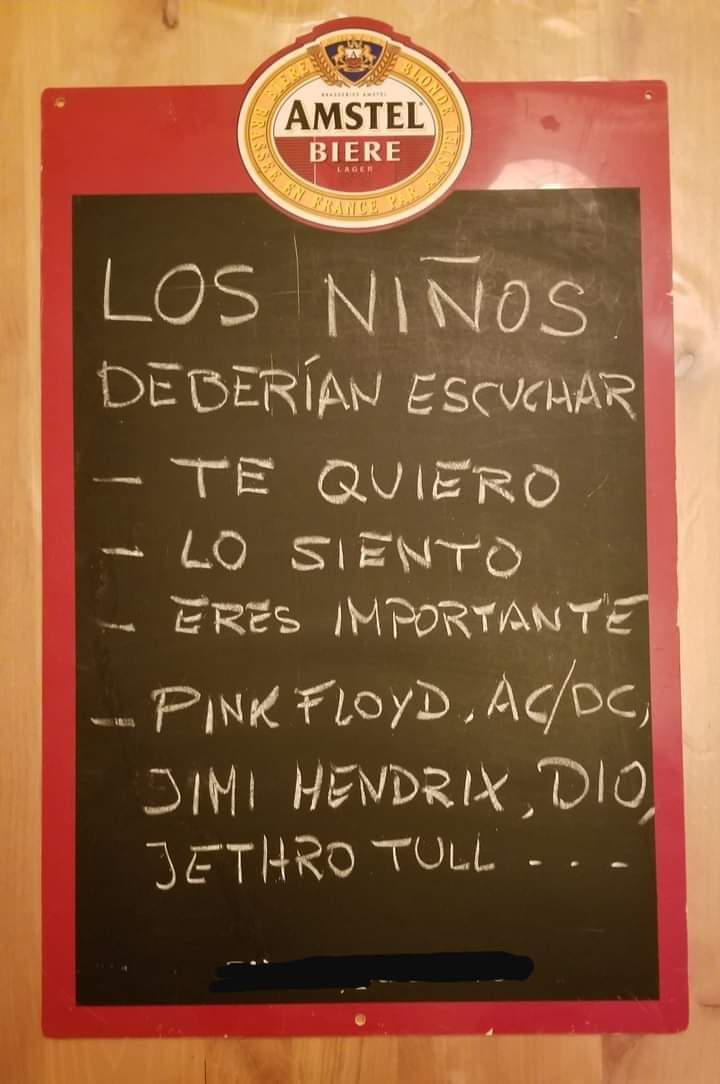 BIERE BLONDE
BRASSERIES AMSTEL
AMSTEL
BIERE
LAGER
BRASSEE EN FRANCE PAR AMSTEL
LOS NIÑOS
DEBERÍAN ESCUCHAR
- TE QUIERO
- LO SIENTO
- ERES IMPORTANTE
- PINK FLOYD, AC/DC,
JIMI HENDRIX, DIO,
JETHRO TULL - - -